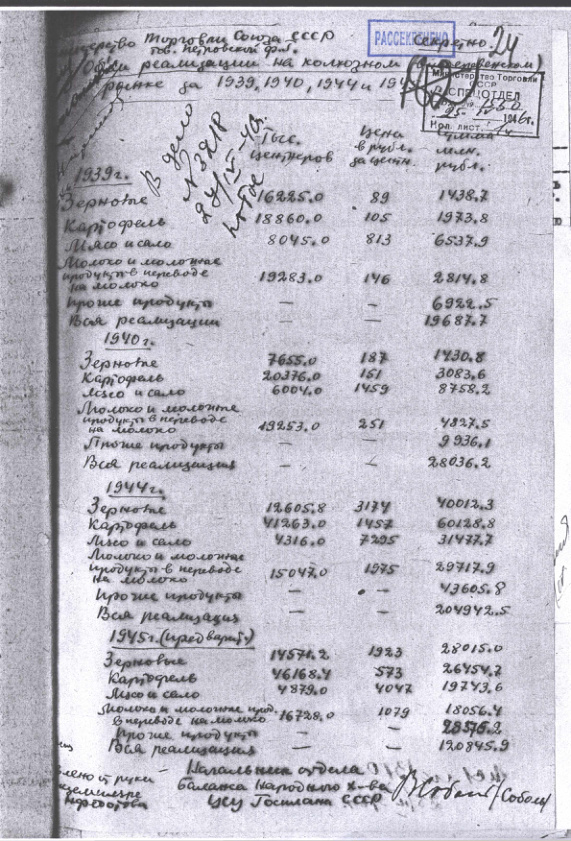 Торговли Союза СССР
Секретно
24
тов. Петровской ф.л.
РАССЕКРЕЧЕНО
реализации на колхозном
рынке за 1939, 1940, 1944 и
Министерство Торговли
СССР
СПЕЦОТДЕЛ
25
1946г.
Кол. лист.
В дело
N 3218
Тыс. центнеров
Цена в рубл. за центн.
Сумма млн. рубл.
1939г.
Зерновые 16225.0 89 1438.7
Картофель 18860.0 105 1973.8
Мясо и сало 8045.0 813 6537.9
Молоко и молочные
продукты в переводе
на молоко 19283.0 146 2814.8
Прочие продукты — — 6922.5
Вся реализация 19687.7
1940г.
Зерновые 7655.0 187 1430.8
Картофель 20376.0 151 3083.6
Мясо и сало 6004.0 1459 8758.2
Молоко и молочные
продукты в переводе
на молоко 19253.0 251 4827.5
Прочие продукты — — 9936.1
Вся реализация — — 28036.2
1944г.
Зерновые 12605.8 3174 40012.3
Картофель 41263.0 1457 60128.8
Мясо и сало 4316.0 7295 31477.7
Молоко и молочные
продукты в переводе
на молоко 15047.0 1975 29717.9
Прочие продукты — — 43605.8
Вся реализация — — 204942.5
1945г. (предварит.)
Зерновые 14571.2 1923 28015.0
Картофель 46168.4 573 26454.7
Мясо и сало 4879.0 4047 19743.6
Молоко и молочные прод.
в переводе на молоко 16728.0 1079 18056.4
Прочие продукты — — 28576.2
Вся реализация — — 120845.9
Начальник отдела
Баланса Народного х-ва
ЦСУ Госплана СССР